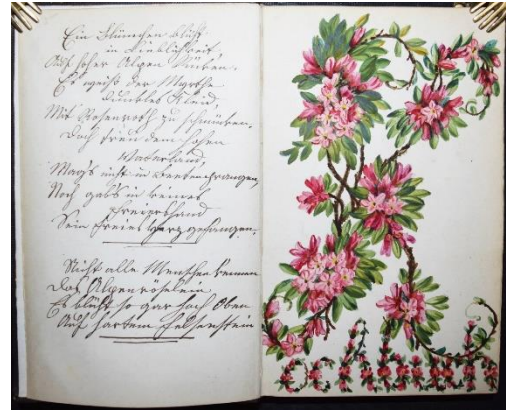 Ein Blümchen blüht
in Lieblichkeit
Auf hoher Alpen Rücken.
Es weiß der Myrthe
dunkles Kleid
Mit Rosenroth zu schmücken,
Doch treu dem hohen
Vaterland,
Mag's nicht in Beeten prangen,
Noch gab's in
Freiershand
Sein freies Herz gefangen.
Nicht alle Menschen kennen
Das Alpenröselein
Es blüht so gar hoch Oben
Auf hartem Felsenstein